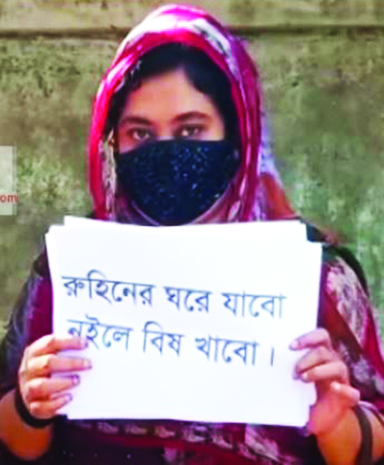 om
রুহিনের ঘরে যাবো
নইলে বিষ খাবো।